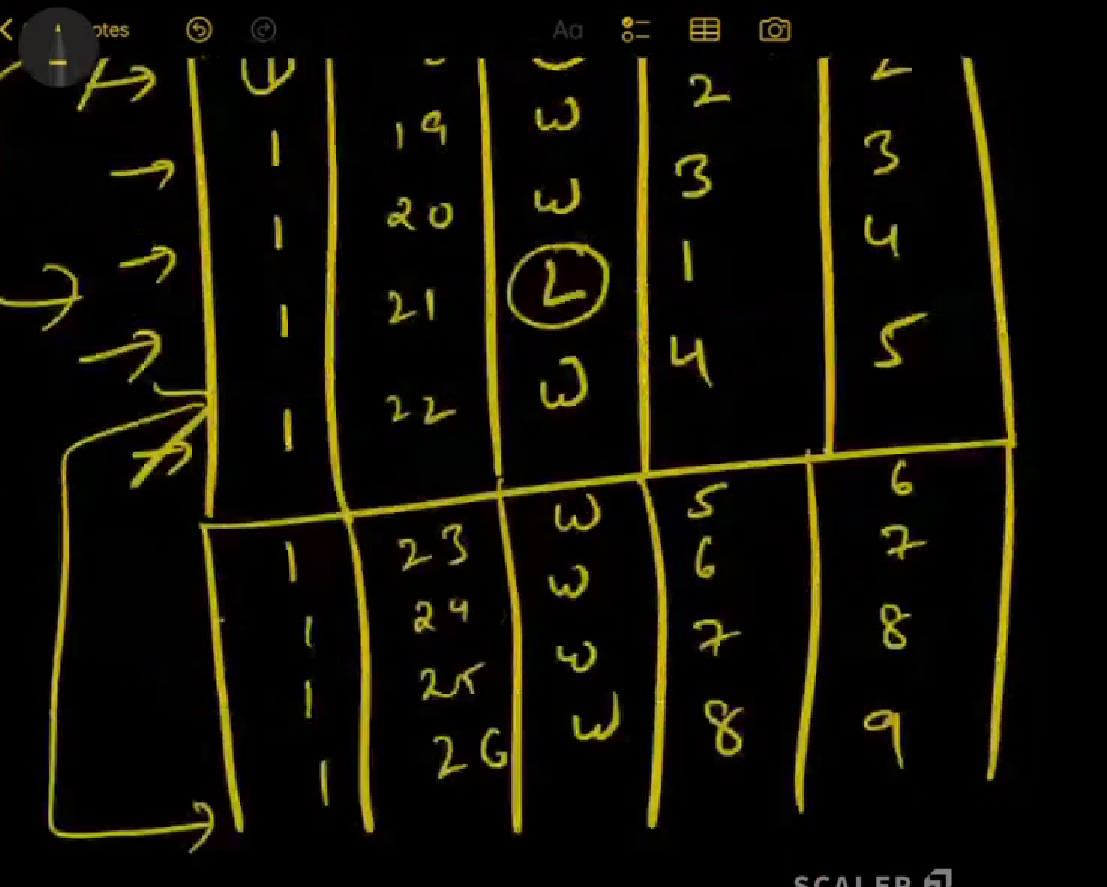 otes Aa
1 2
1 19 W 3 3
1 20 W 1 4
1 21 L 4 5
1 22 W
1 23 W 5 6
1 24 W 6 7
1 25 W 7 8
1 26 W 8 9
SCALER